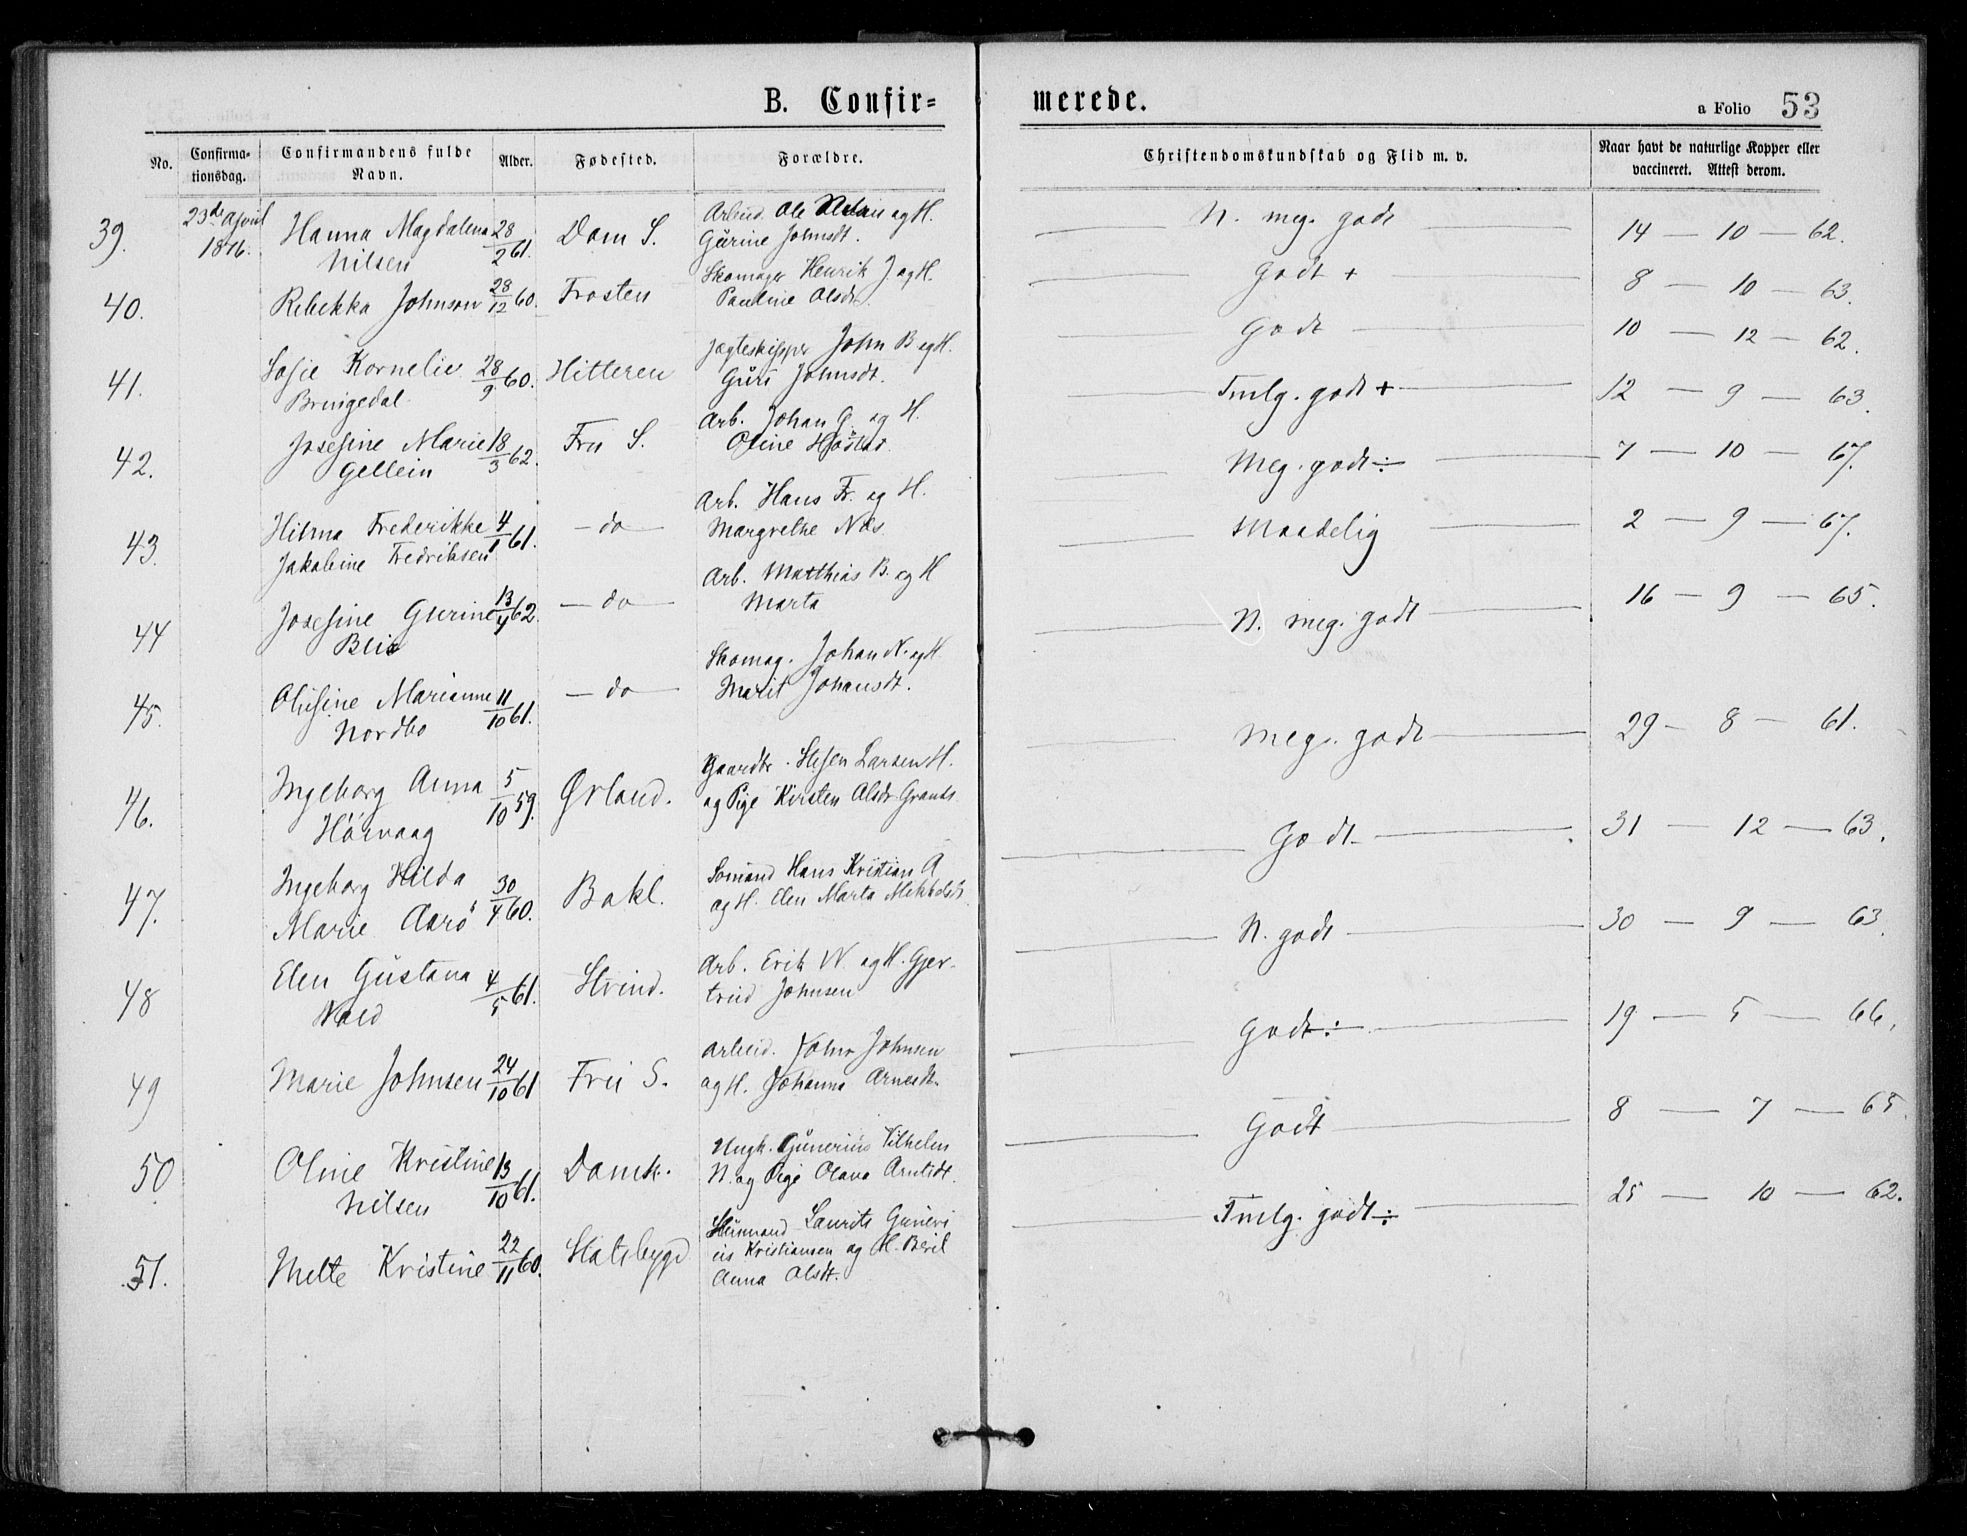 B. Confir=
merede.
a Folio 53
No.
Confirma-
tionsdag.
Confirmandens fulde
Navn.
Alder.
Fødested.
Forældre.
Christendomskundskab og Flid m. v.
Naar havt de naturlige Kopper eller
vaccineret. Attest derom.
39. 23de April Hanna Magdalena 28/2 61. Dom S. Arbeid. Ole Nilsen og H.
1876. Nilsen Gurine Johnsdt.
N. meg. godt 14 — 10 — 62.
40. Rebekka Johnson 28/12 60. Frosten Skomager Henrik J og H.
Pauline Olsdt.
Godt + 8 — 10 — 63.
41. Sofie Kornelie 28/9 60. Hitteren Jægteskipper John B og H.
Bruigedal Guri Johnsdt.
Godt 10 — 12 — 62.
42. Josefine Marie 18/3 62. Fru S. Arb. Johan G. og H.
Gellein Oline
Tmlg. godt + 12 — 9 — 63.
43. Hilma Frederikke 4/1 61. — do — Arb. Hans Fr. og H.
Jakobine Fredriksen Margrethe Næs.
Meg. godt ÷ 7 — 10 — 67.
44 Josefine Gurine 13/4 62. — do — Arb. Matthias B. og H
Blix Marta
Maadelig 2 — 9 — 67.
45. Olufine Marianne 11/10 61. — do — Skomag. Johan N. og H.
Nordbo Marit Johansdt.
N. meg. godt 16 — 9 — 65.
46. Ingeborg Anna 5/10 59. Ørland. Gaardbr. Steffen Larsen H.
Hårvaag og Pige Kirsten Olsdt
Meg. godt 29 — 8 — 61.
47. Ingeborg Hilda 30/4 60. Bakl. Sømand Hans Kristian A
Marie Aarö og H. Elen Marta
Godt 31 — 12 — 63.
48 Elen Gustava 4/5 61. Strind. Arb. Erik W. og H. Gjer-
Wold trud Johnsen
N. godt 30 — 9 — 63.
49 Marie Johnsen 24/10 61 Fru S. Arbeid. John Johnsen
og H. Johanna Arnesdt.
Godt ÷ 19 — 5 — 66.
50 Oline Kristine 13/10 61. Domk. Ungk. Gunerius Vilhelm
Nilsen N. og Pige Olava Arntsdt.
Godt 8 — 7 — 65.
51. Mette Kristine 22/11 60. Statsbygd Laurits Guneri
us Kristiansen og H. Beril
Anna Olsdt.
Tmlg. godt ÷ 25 — 10 — 62.